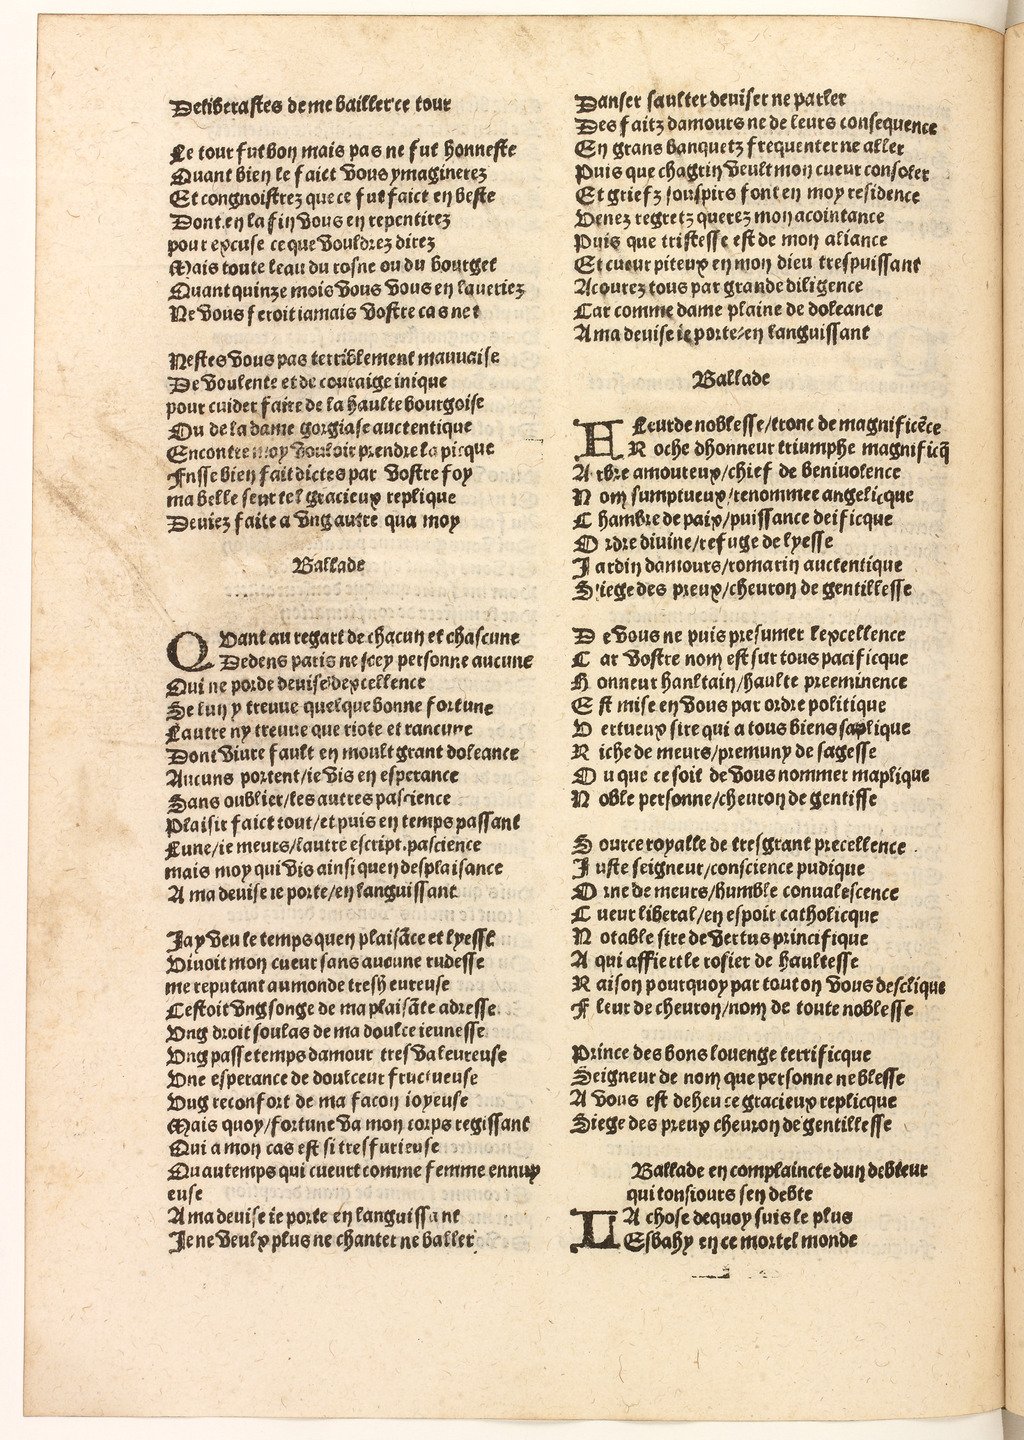 Deliberastes de me bailler ce tour
Le tour fut bon mais pas ne fut honneste
Quant bien le faict vous ymaginerez
Et congnoistrez que ce fut faict en beste
Dont en la fin vous en repentirez
pour excuse ce que vouldrez direz
Mais toute leau du rosne ou du bourget
Quant quinze mois vous vous en laueriez
Ne vous feroit iamais vostre cas net
Nestes vous pas terriblement mauuaise
De voulente et de couraige inique
pour cuider faire de la haulte bourgoise
Ou de la dame gorgiase auctentique
Encontre moy vouloir prendre la picque
Fusse bien fait dictes par vostre foy
ma belle seur tel gracieux replique
Deuiez faite a vng autre qua moy
Ballade
QVant au regart de chacun et chascune
Dedens paris ne scey personne aucune
Qui ne porde deuise dexcellence
Se lun y treuue quelque bonne fortune
Lautre ny treuue que riote et rancune
Dont viure fault en moult grant doleance
Aucuns portent/ie vis en esperance
Sans oublier/les autres pascience
Plaisir faict tout/et puis en temps passant
Lune/ie meurs/lautre escript.pascience
mais moy qui vis ainsi quen desplaisance
A ma deuise ie porte/en languissant
Jay veu le temps quen plaisāce et lyesse
Viuoit mon cueur sans aucune rudesse
me reputant au monde tresheureuse
Cestoit vng songe de ma plaisāte adresse
Vng droit soulas de ma doulce ieunesse
Vng passe temps damour tres valeureuse
Vne esperance de doulceur fructueuse
Vug reconfort de ma facon ioyeuse
Mais quoy/fortune va mon corps regissant
Qui a mon cas est si tres furieuse
Quautemps qui cueurt comme femme ennuy
euse
A ma deuise ie porte en languissant
Je ne veulx plus ne chanter ne baller
Danser saulter deuiser ne parler
Des faitz damours ne de leurs consequence
En grans banquetz frequenter ne aller
Puis que chagrin veult mon cueur consoler
Et griefz souspirs font en moy residence
Venez regretz querez mon acointance
Puis que tristesse est de mon aliance
Et cueur piteux en mon dieu trespuissant
Acourez tous par grande diligence
Car comme dame plaine de doleance
A ma deuise ie porte/en languissant
Ballade
FLeur de noblesse/tronc de magnificēce
R oche dhonneur triumphe magnificq̄
A rbre amoureux/chief de beniuolence
N om sumptueux/renommee angelicque
C hambre de paix/puissance deificque
O rdre diuine/refuge de lyesse
J ardin damours/romarin auctentique
S iege des preux/cheuron de gentillesse
D e vous ne puis presumer lexcellence
C ar vostre nom est sur tous pacificque
H onneur haultain/haulte preeminence
E st mise en vous par ordre politique
V ertueux sire qui a tous biens saplique
R iche de meurs/premuny de sagesse
O u que ce soit de vous nommer maplique
N oble personne/cheuron de gentisse
S ource royalle de tresgrant precellence .
J uste seigneur/conscience pudique
O rne de meurs/humble conualescence
C ueur liberal/en espoir catholicque
N otable sire de vertus principique
A qui affiert le rosier de haultesse
R aison pourquoy par tout on vous desclique
F leur de cheuron/nom de toute noblesse
Prince des bons louenge terrificque
Seigneur de nom que personne ne blesse
A vous est deheu ce gracieux replicque
Siege des preux cheuron de gentillesse
Ballade en complaincte dun debteur
qui tousiours sen debte
LA chose dequoy suis le plus
Esbahy en ce mortel monde